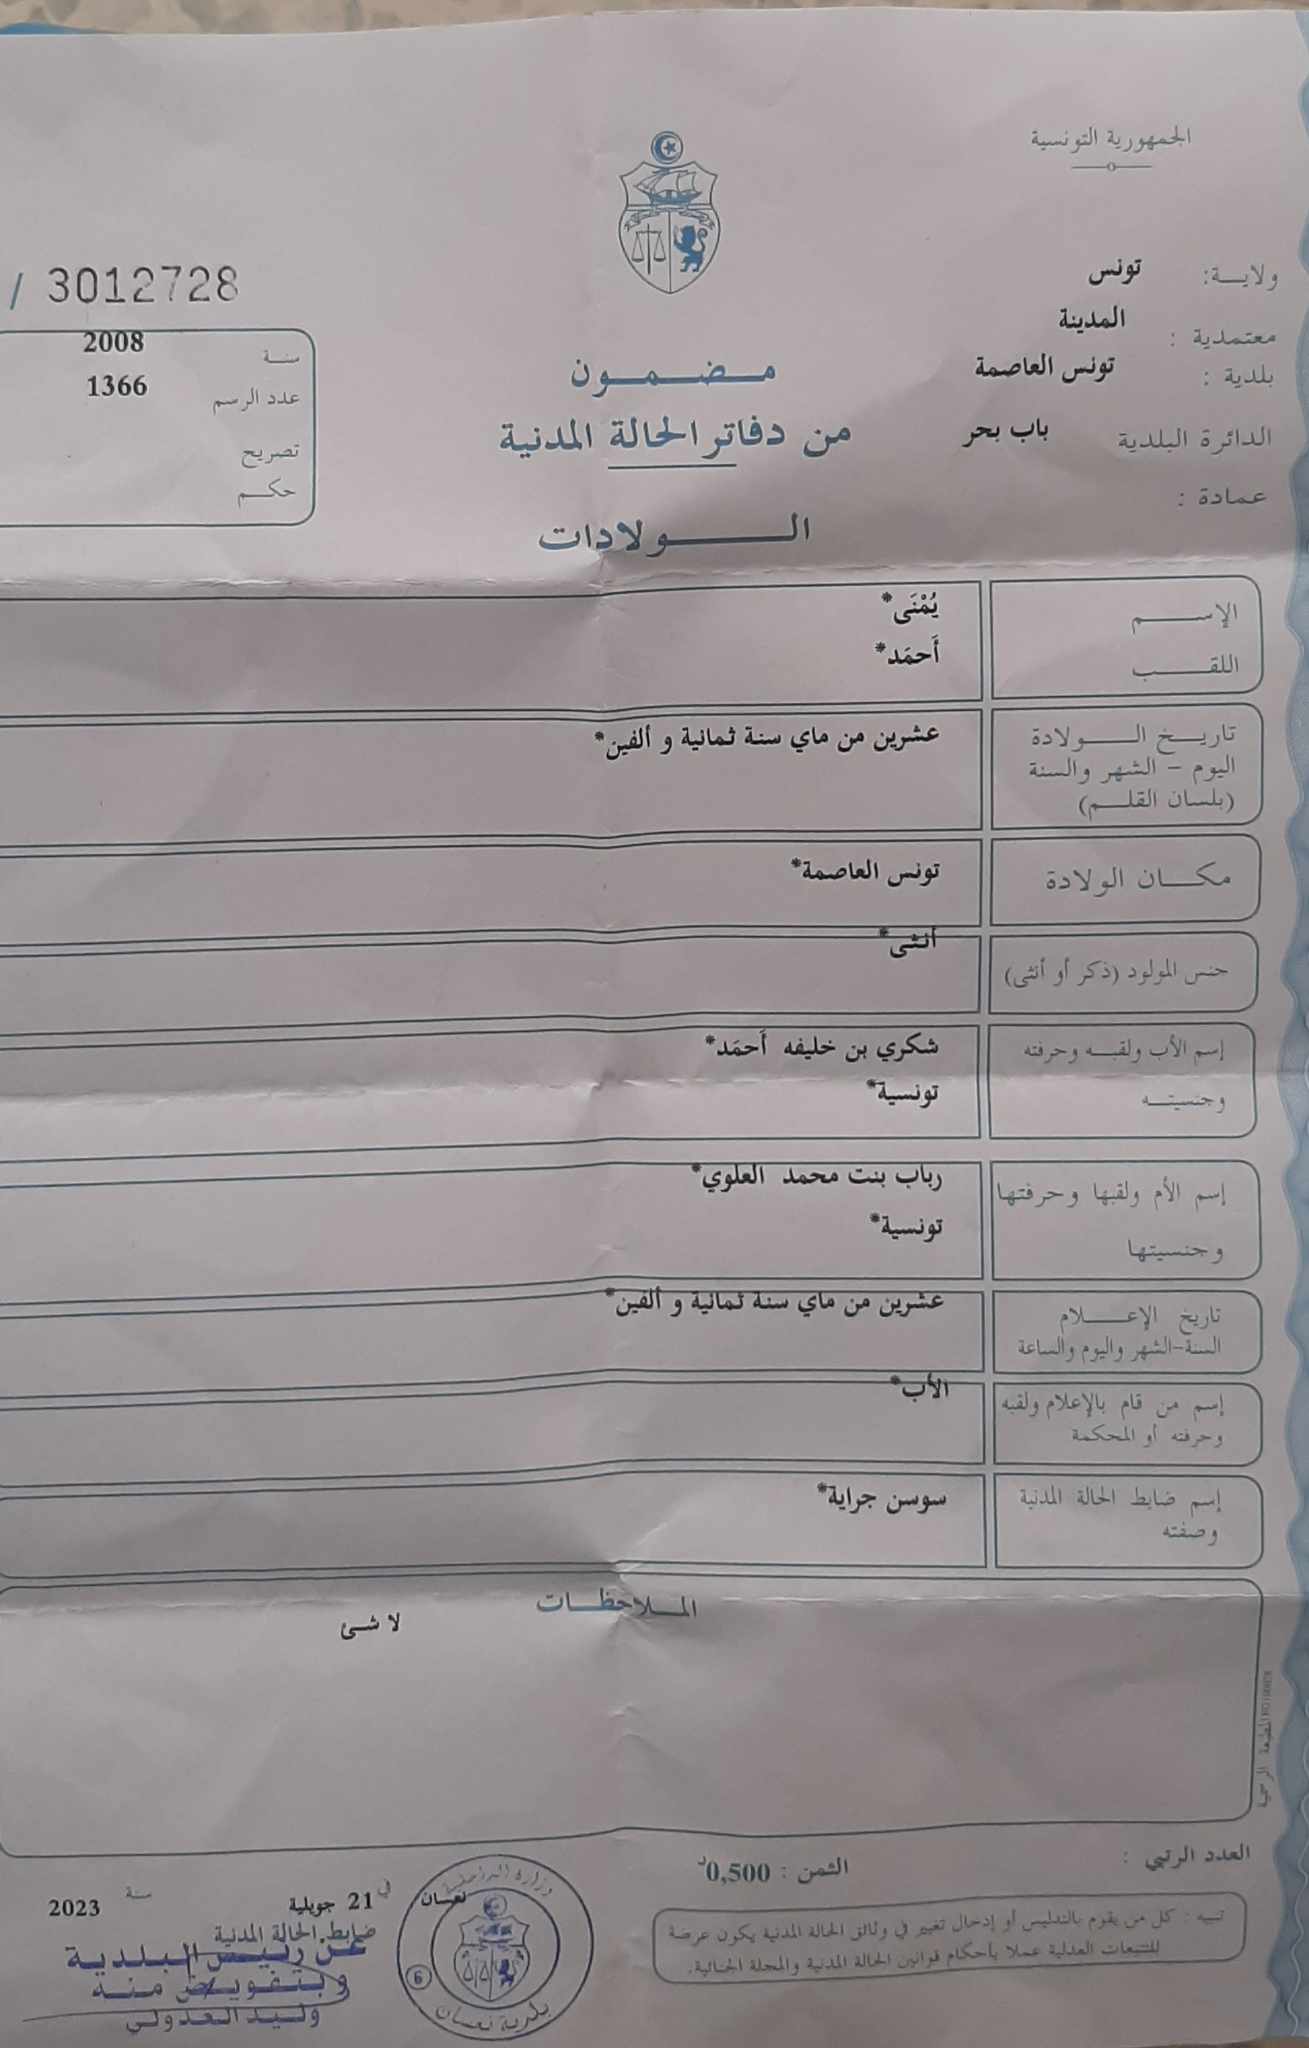 الجمهورية التونسية
ولايـة: تونس
معتمدية : المدينة
بلدية : تونس العاصمة
الدائرة البلدية باب بحر
عمادة :
/ 3012728
سنة 2008
عدد الرسم 1366
تصريح
حكم
مضمون
من دفاتر الحالة المدنية
الولادات
الإسم يُمْنَى*
اللقب أَحمَد*
تاريخ الولادة عشرين من ماي سنة ثمانية و ألفين*
اليوم - الشهر والسنة
(بلسان القلم)
مكان الولادة تونس العاصمة*
جنس المولود (ذكر أو أنثى) أنثى*
إسم الأب ولقبه وحرفته شكري بن خليفه أَحمَد*
وجنسيته تونسية*
إسم الأم ولقبها وحرفتها رباب بنت محمد العلوي*
وجنسيتها تونسية*
تاريخ الإعلام عشرين من ماي سنة ثمانية و ألفين*
السنة-الشهر واليوم والساعة
إسم من قام بالإعلام ولقبه الأب*
وحرفته أو المحكمة
إسم ضابط الحالة المدنية سوسن جراية*
وصفته
الملاحظات
لا شئ
المطبعة الرسمية
العدد الرتبي :
الثمن : 0,500د
تنبيه : كل من يقوم بالتدليس أو إدخال تغيير في وثائق الحالة المدنية يكون عرضة
للتتبعات العدلية عملا بأحكام قوانين الحالة المدنية والمجلة الجنائية.
نعسان في 21 جويلية سنة 2023
ضابط الحالة المدنية
عن رئيس البلدية
وبتفويض منه
وليد العدولي
وزارة الداخلية
6
بلدية نعسان